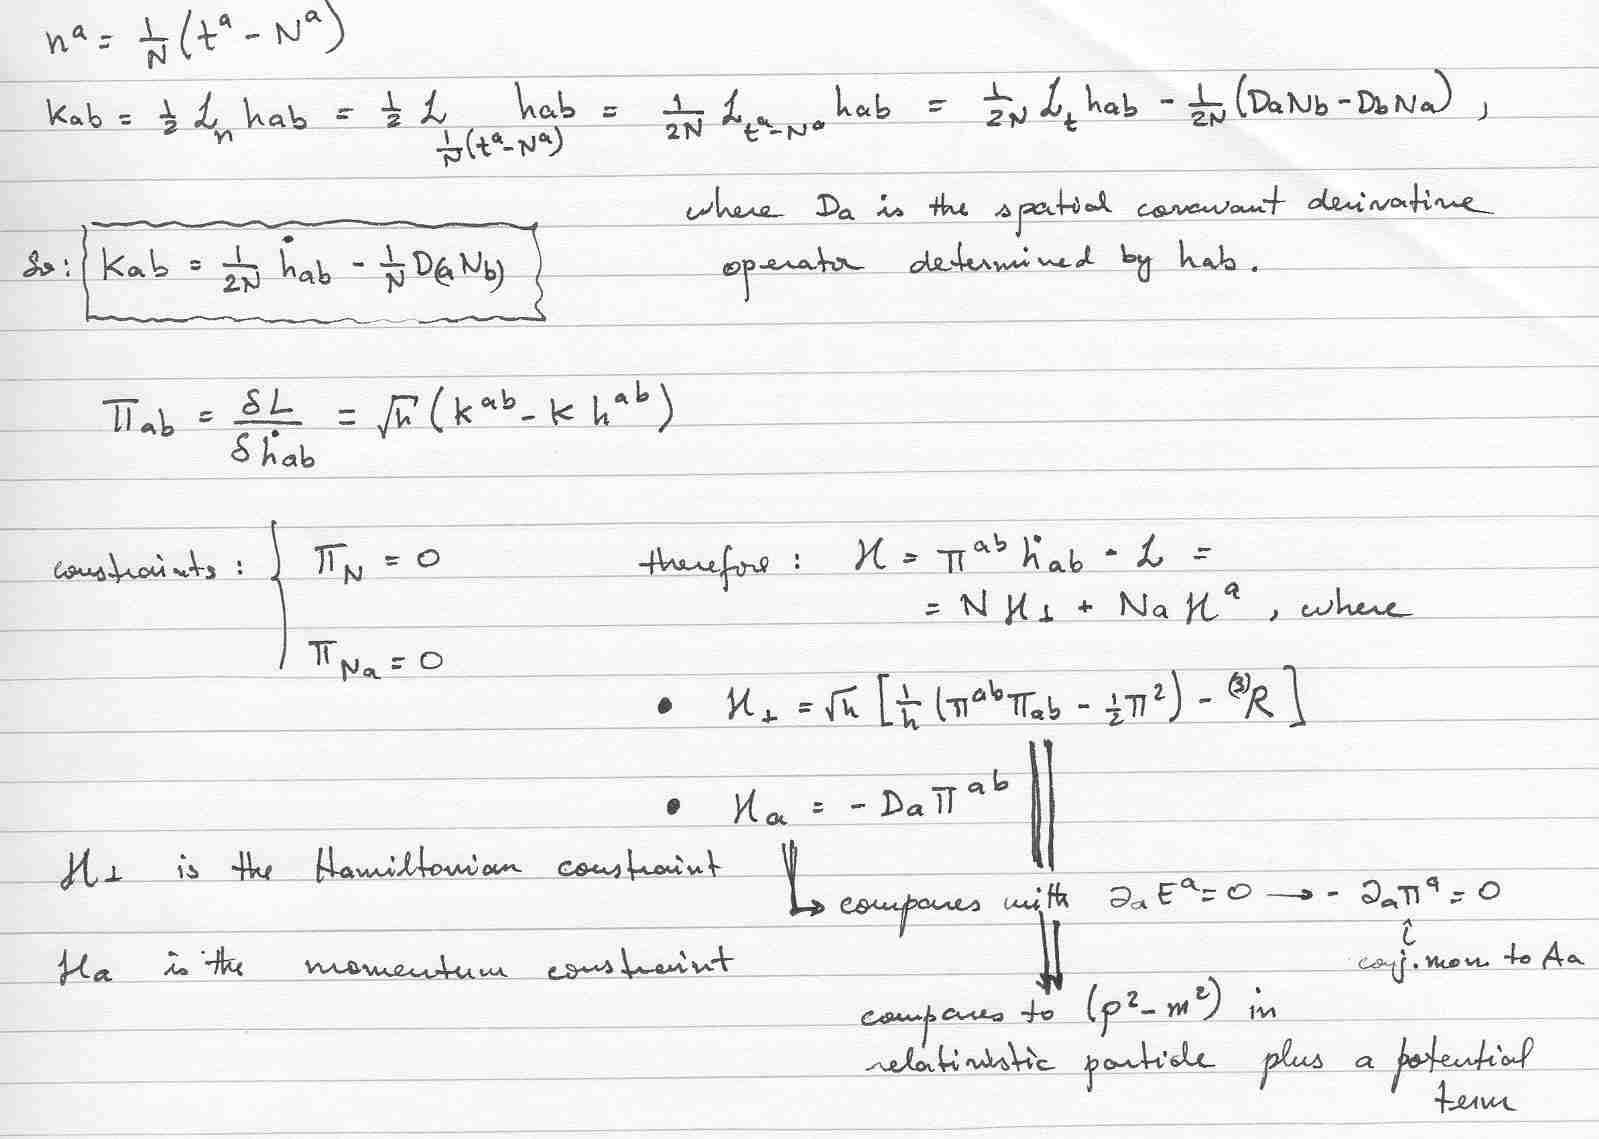 nᵃ = 1/N (tᵃ - Nᵃ)
Kab = ½ ℒₙ hab = ½ ℒ_{1/N (tᵃ - Nᵃ)} hab = 1/2N ℒ_{tᵃ - Nᵃ} hab = 1/2N ℒₜ hab - 1/2N (DaNb - DbNa),
where Da is the spatial covariant derivative
operator determined by hab.
So: Kab = 1/2N ḣab - 1/N D(aNb)
Πab = δL/δḣab = √h (Kᵃᵇ - K hᵃᵇ)
constraints: { Π_N = 0
Π_Na = 0
therefore: ℋ = πᵃᵇ ḣab - ℒ =
= N ℋ⊥ + Na ℋᵃ, where
• ℋ⊥ = √h [1/h (πᵃᵇ πab - ½π²) - ⁽³⁾R]
• ℋa = - Da πᵃᵇ
ℋ⊥ is the Hamiltonian constraint
compares with ∂aEᵃ = 0 → - ∂aπᵃ = 0
conj. mom to Aa
ℋa is the momentum constraint
compares to (p² - m²) in
relativistic particle plus a potential
term